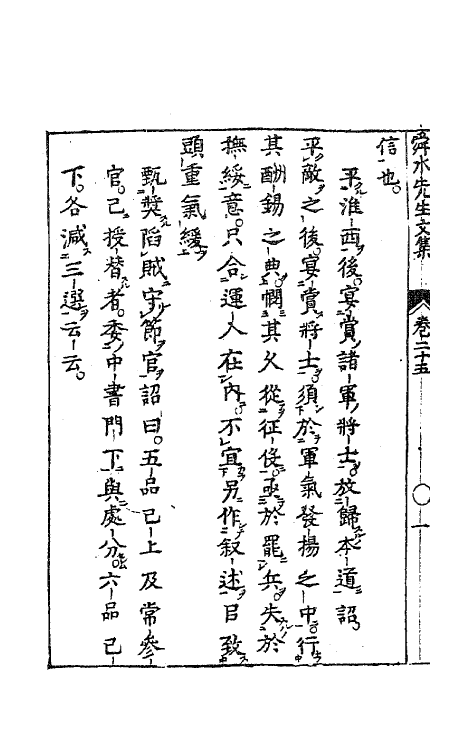 舜水先生文集 卷二十五 〇一
信也。
平淮西後。宴賞諸軍將士。放歸本道詔。
平敵之後。宴賞將士。須於軍氣發揚之中。行
其酬錫之典。憫其久從征伇。亟於罷兵。失於
撫綏意。只合運人在內。不宜另作叙述。目致
頭重氣緩
甄奬陷賊守節官詔曰。五品已上及常參
官。已授替者。委中書門下與處分。六品已
下。各減三選云云。